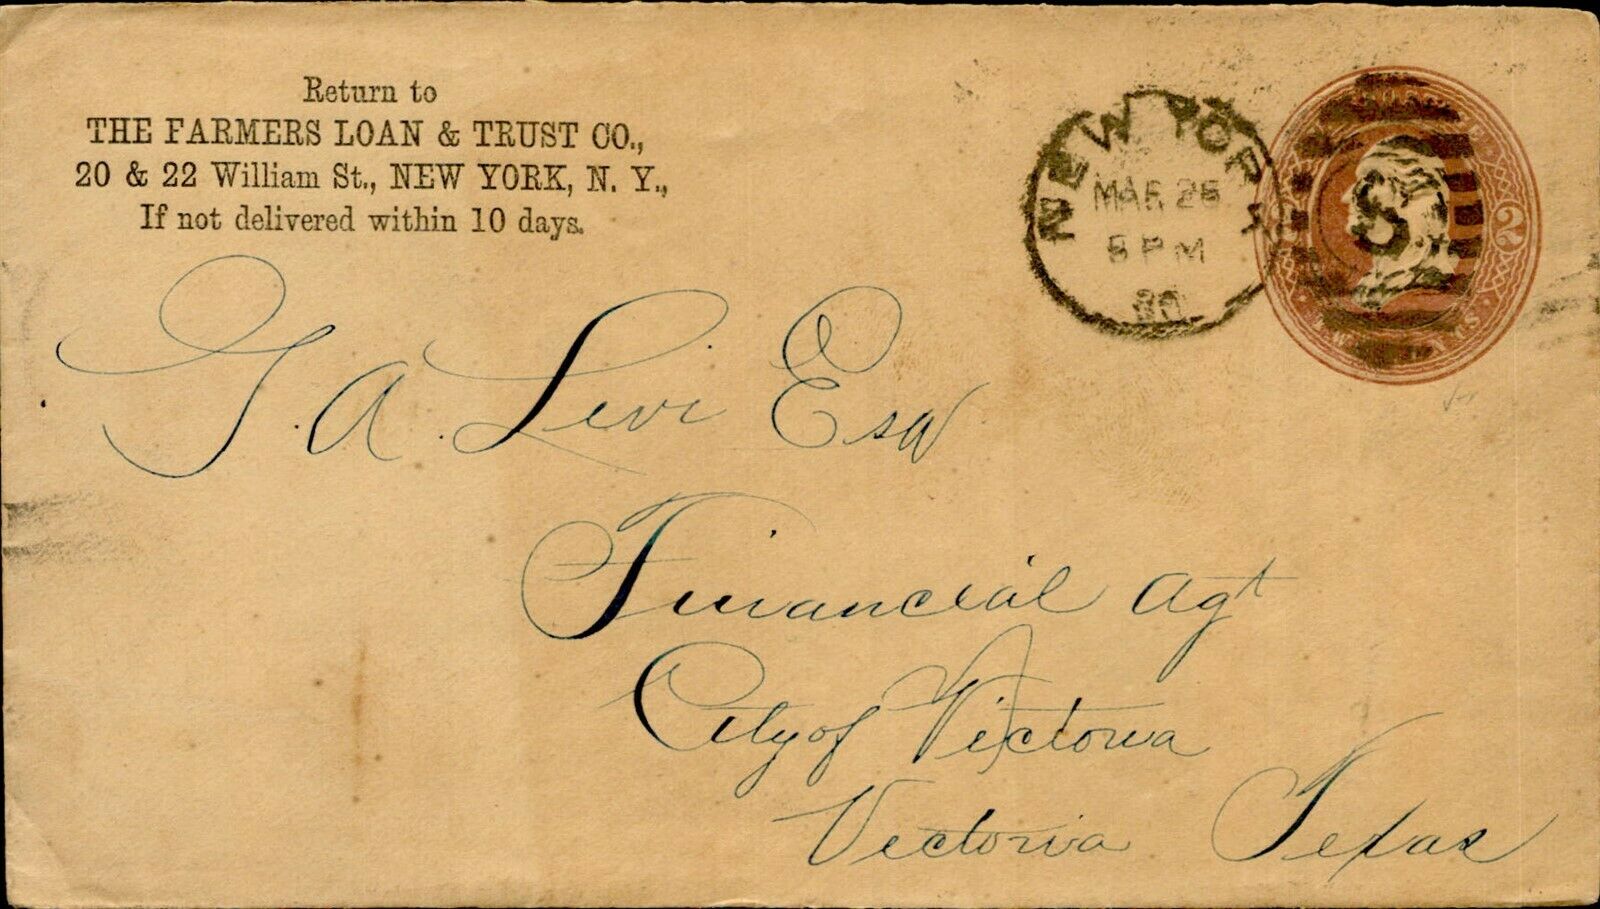 Return to
THE FARMERS LOAN & TRUST CO.,
20 & 22 William St., NEW YORK, N. Y.,
If not delivered within 10 days.
NEW YORK
MAR 26
8 PM
S
2
G. A. Levi Esq
Financial Agt
City of Victoria
Victoria Texas